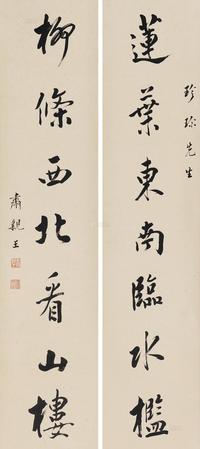 珍珎先生
蓮葉東南臨水檻
柳條西北看山樓
肅親王